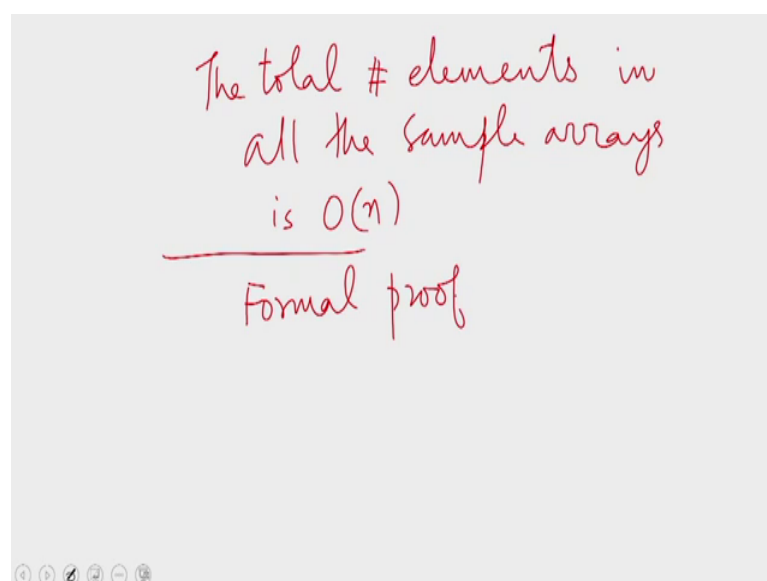 The total # elements in
all the sample arrays
is O(n)
Formal proof